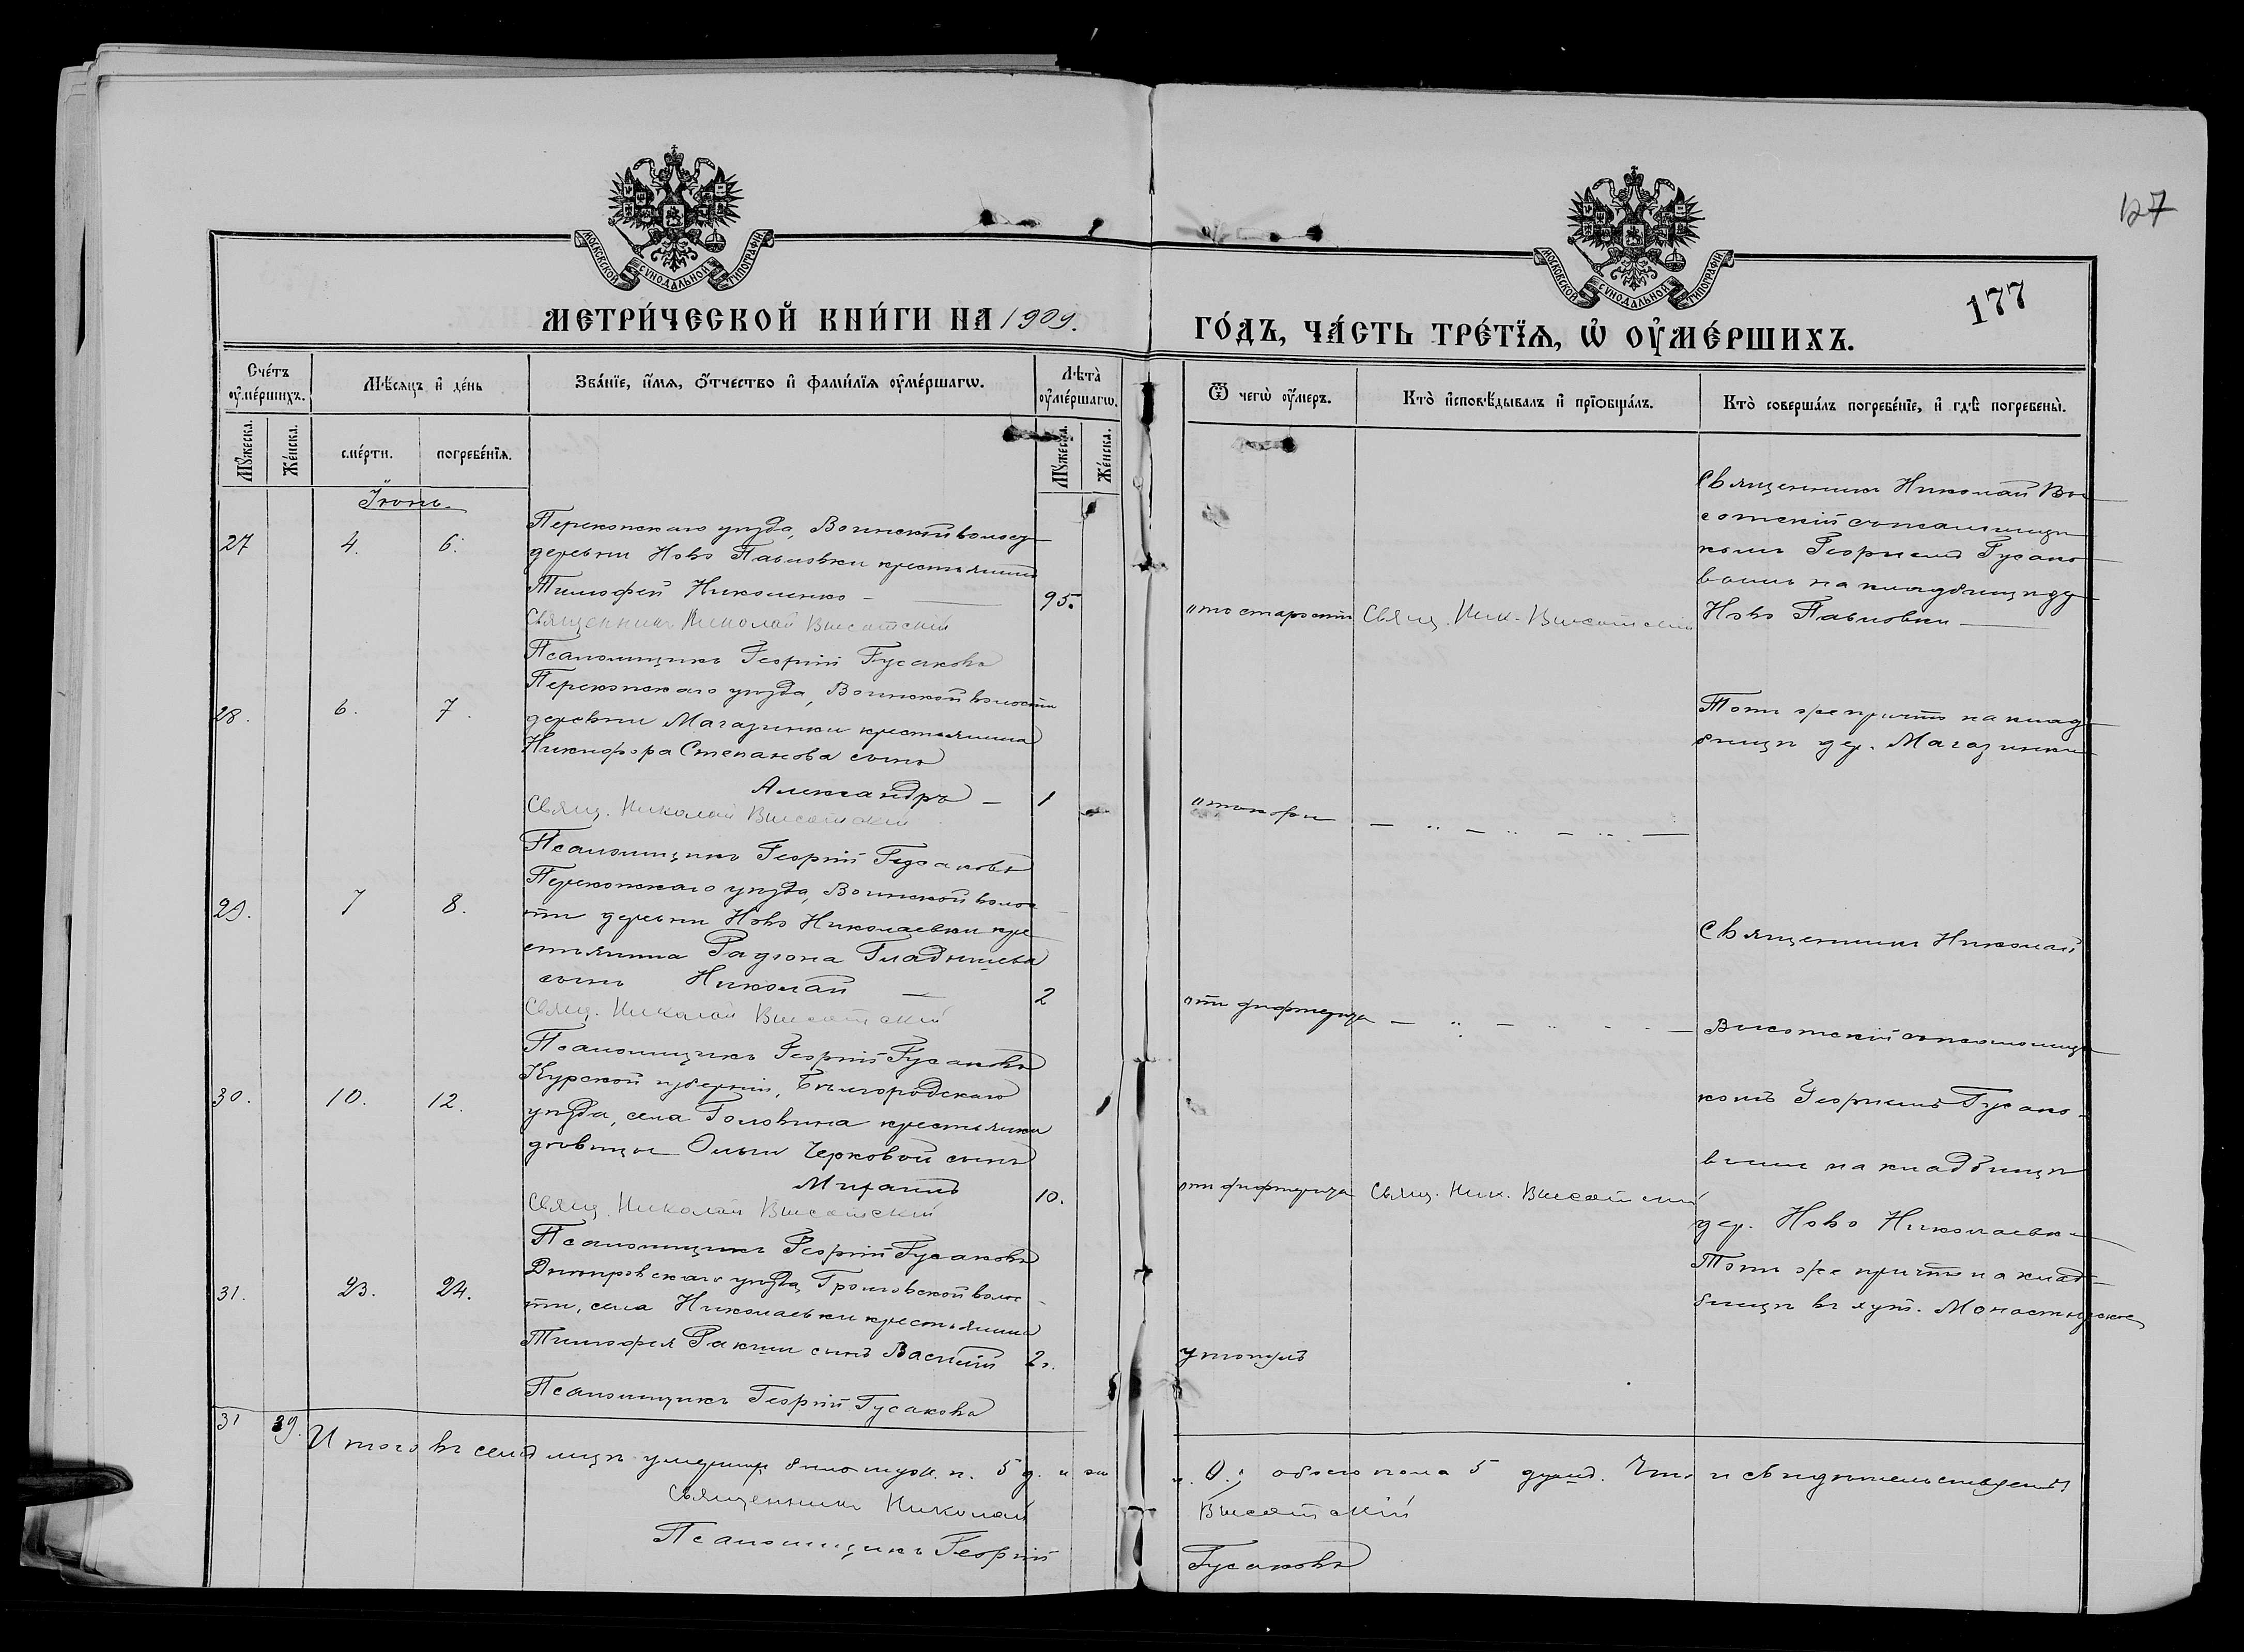 127
177
МОСКОВСКОЙ СѴНОДАЛЬНОЙ ТИПОГРАФІИ
МОСКОВСКОЙ СѴНОДАЛЬНОЙ ТИПОГРАФІИ
МЕТРИ́ЧЕСКОЙ КНИ́ГИ НА 1909.
ГО́ДЪ, ЧА́СТЬ ТРЕ́ТЇѦ, Ѡ҆ ОУ҆МЕ́РШИХЪ.
Сче́тъ оу҆ме́ршихъ.
Мѣ́сяцъ и҆ де́нь
Зва́нїе, и҆́мѧ, ѻ҆́тчество и҆ фами́лїѧ оу҆ме́ршагѡ.
Лѣта̀ оу҆ме́ршагѡ.
Ѿ чегѡ̀ оу҆́меръ.
Кто̀ и҆сповѣ́дывалъ и҆ прїѻбща́лъ.
Кто̀ соверша́лъ погребе́нїе, и҆ гдѣ̀ погребены̀.
Мꙋ́жеска.
Же́нска.
сме́рти.
погребе́нїѧ.
Мꙋ́жеска.
Же́нска.
Іюнь.
27
4.
6.
Перекопскаго уѣзда, Воинской волост
деревни Ново Павловки крестьянинъ
Тимофей Николенко
95.
Священникъ Николай Высотскій
Псаломщикъ Георгій Гусаковъ
отъ старости
Свящ. Ник. Высотскій
Священникъ Николай Вы
сотскій съ псаломщи
комъ Георгіемъ Гусако
вымъ на кладбищѣ д.
Ново Павловки
28.
6.
7.
Перекопскаго уѣзда, Воинской волости
деревни Магазинки крестьянина
Никифора Степанова сынъ
Александръ
1
Свящ. Николай Высотскій
Псаломщикъ Георгій Гусаковъ
отъ кори
Тотъ же причтъ на клад
бищѣ дер. Магазинки
29.
7
8.
Перекопскаго уѣзда, Воинской волос
ти деревни Ново Николаевки кре
стьянина Радіона Гладышева
сынъ Николай
2
Свящ. Николай Высотскій
Псаломщикъ Георгій Гусаковъ
отъ дифтерита
Священникъ Николай
Высотскій съ псаломщи
комъ Георгіемъ Гусако
вымъ на кладбищѣ
дер. Ново Николаевки
30.
10.
12.
Курской губерніи, Бѣлгородскаго
уѣзда, села Головина крестьянки
дѣвицы Ольги Черковой сынъ
Михаилъ
10.
Свящ. Николай Высотскій
Псаломщикъ Георгій Гусаковъ
отъ дифтерита
Свящ. Ник. Высотскій
31.
23.
24.
Днѣпровскаго уѣзда, Громовской волос
ти, села Николаевки крестьянина
Тимофея Ракши сынъ Василій
Псаломщикъ Георгій Гусаковъ
утонулъ
Тотъ же причтъ на клад
бищѣ въ хут. Монастырское
31
39.
Итого въ семъ мцѣ умершихъ было муж. п. 5 д. и ж
п. 0.; обоего пола 5 душъ. Что и свидѣтельствуемъ
Священникъ Николай Высотскій
Псаломщикъ Георгій Гусаковъ